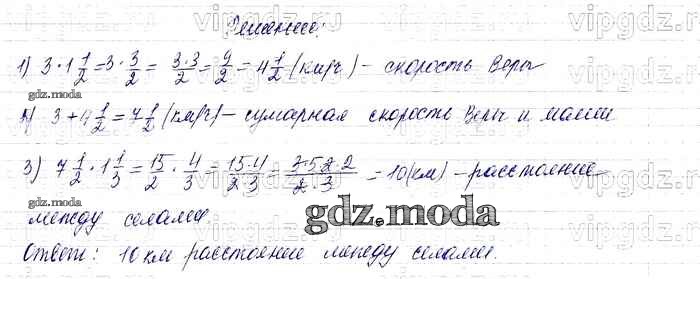 Решение:
1) 3·1 1/2 = 3·3/2 = 3·3/2 = 9/2 = 4 1/2 (км/ч) – скорость Веры
2) 3 + 4 1/2 = 7 1/2 (км/ч) – сумарная скорость Веры и мамы
3) 7 1/2 · 1 1/3 = 15/2 · 4/3 = 15·4/2·3 = 3·5·2·2/2·3 = 10 (км) – расстояние
между селами.
Ответ: 10 км расстояние между селами.
gdz.moda
gdz.moda
gdz.moda
vipgdz.ru
vipgdz.ru
vipgdz.ru
vipgdz.ru